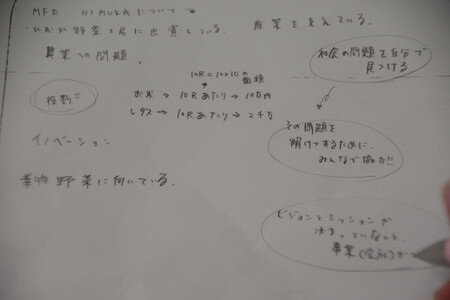 MFE HIMUKAについて
野菜工房に出資している。 産業を支えている。
農業への問題。
社会の問題を自分で
見つける
10R=10×10の
面積
役割!!
おお → 10Rあたり → 10万円
レタス → 10Rあたり → 2千万
その問題を
解けつするために
みんなで協力!!
イノベーション
葉物野菜に向いている。
ビジョンとミッションが
決まっていないと
事業(会社)が